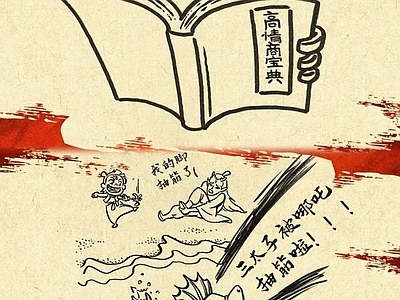 高情商宝典
我的脚
抽筋了！
三太子被哪吒
抽筋啦！！！